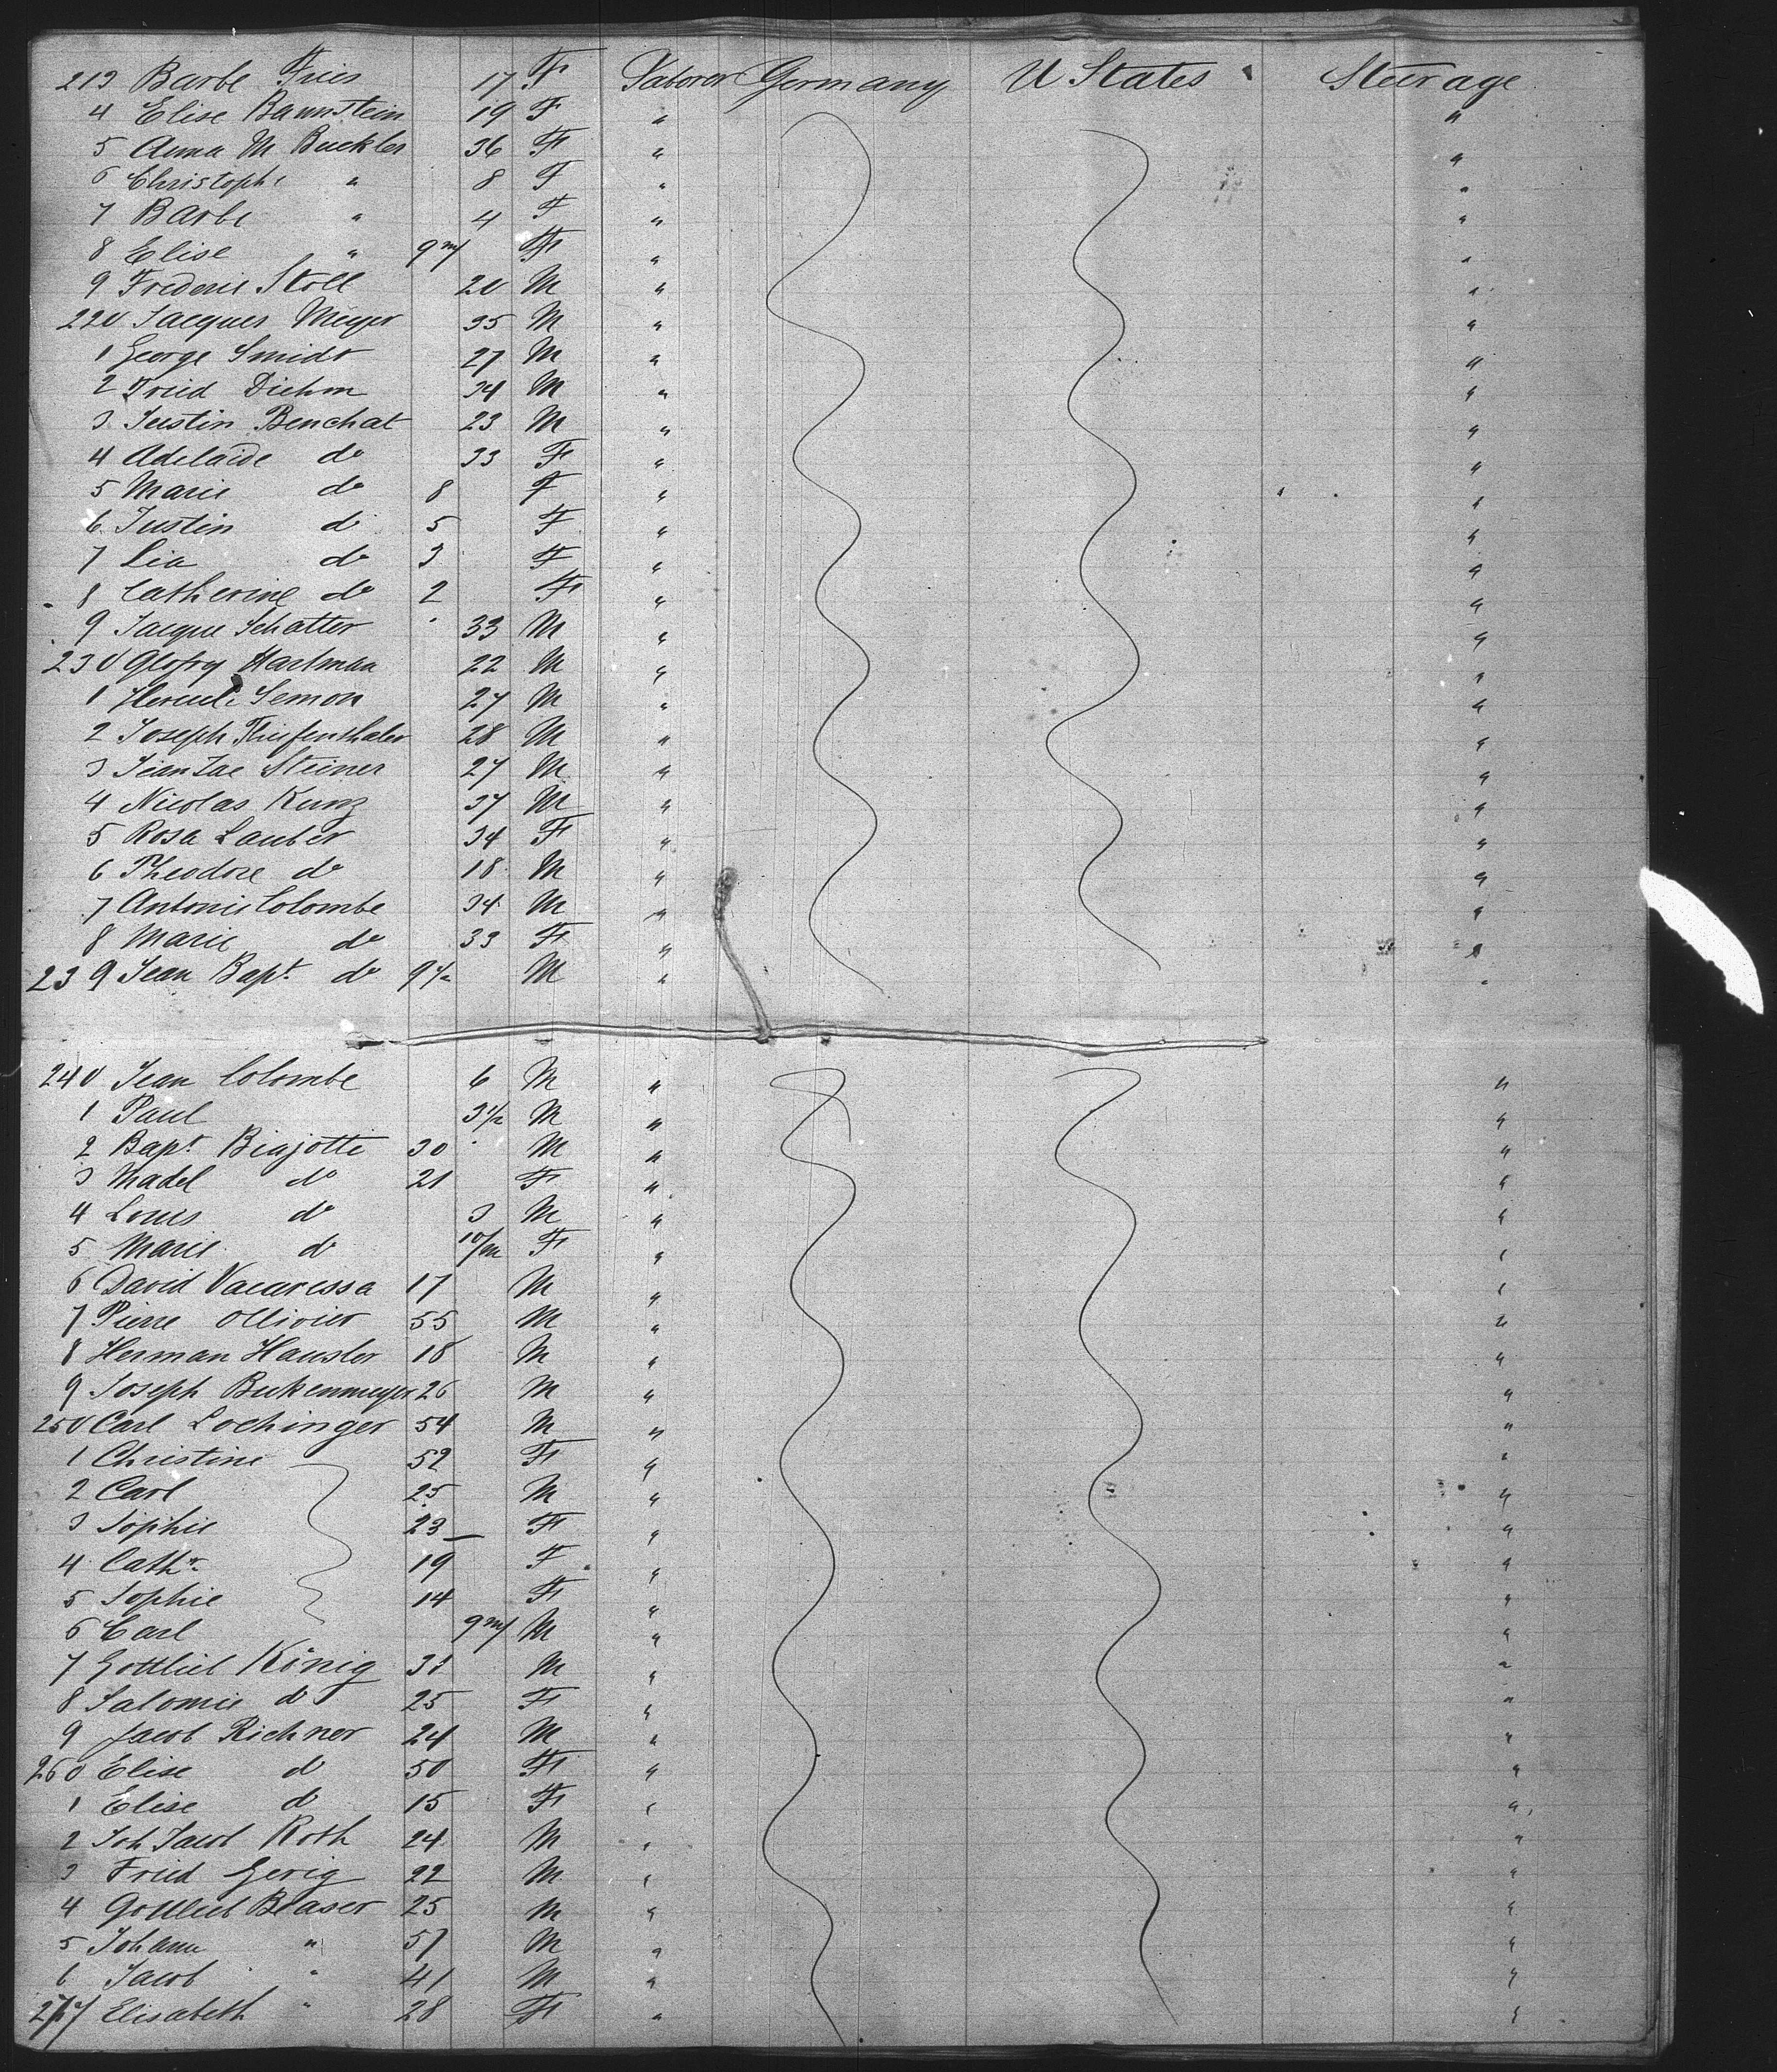 213 Barbe Fries 17 F Laborer Germany U States Steerage
4 Elise Baumstein 19 F " "
5 Anna M Buckler 36 F " "
6 Christophe " 8 F " "
7 Barbe " 4 F " "
8 Elise " 9m/ F " "
9 Frederic Stoll 20 M " "
220 Jacques Meyer 35 M " "
1 George Smidt 27 M " "
2 Fried Diehm 34 M " "
3 Justin Benchat 23 M " "
4 Adelaide do 33 F " "
5 Marie do 8 F " "
6 Justin do 5 F " "
7 Lia do 3 F " "
8 Catherine do 2 F " "
9 Jacque Schatter 33 M " "
230 Hartman 22 M " "
1 Hercule Semon 27 M " "
2 Joseph Thiefenthaler 28 M " "
3 Jean Jac Steiner 27 M " "
4 Nicolas Kunz 37 M " "
5 Rosa Lauber 34 F " "
6 Theodore do 18 M " "
7 Antonie Colombe 34 M " "
8 Marie do 33 F " "
239 Jean Bapt do 9 1/2 M " "
240 Jean Colombe 6 M " "
1 Paul 3 1/2 M " "
2 Bapt Biajotti 30 M " "
3 Madel do 21 F " "
4 Louis do 3 M " "
5 Marie do 10/m F " "
6 David Vacaressa 17 M " "
7 Pierre Ollivier 55 M " "
8 Herman Hausler 18 M " "
9 Joseph Bukenmeyer 26 M " "
250 Carl Lochinger 54 M " "
1 Christine 52 F " "
2 Carl 25 M " "
3 Sophie 23 F " "
4 Cathr 19 F " "
5 Sophie 14 F " "
6 Carl 9m/ M " "
7 Gottlieb König 31 M " "
8 Salomie do 25 F " "
9 Jacob Richner 24 M " "
260 Elise do 50 F " "
1 Elise do 15 F " "
2 Joh Jacob Roth 24 M " "
3 Fried Gerig 22 M " "
4 Gottlieb Blaser 25 M " "
5 Johann " 57 M " "
6 Jacob " 41 M " "
Elisabeth " 28 F " "